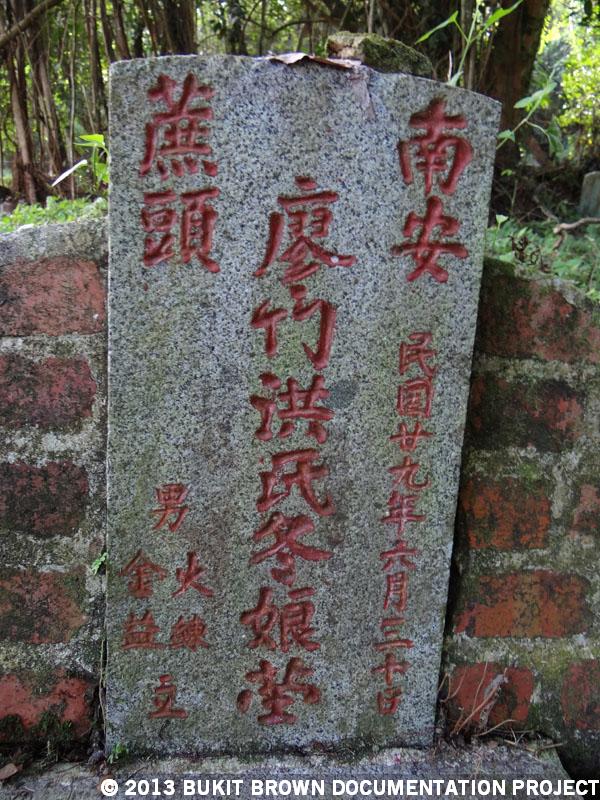 南安
蔗頭
民国廿九年六月三十日
廖竹洪氏冬娘茔
男
火練
金益
立
© 2013 BUKIT BROWN DOCUMENTATION PROJECT